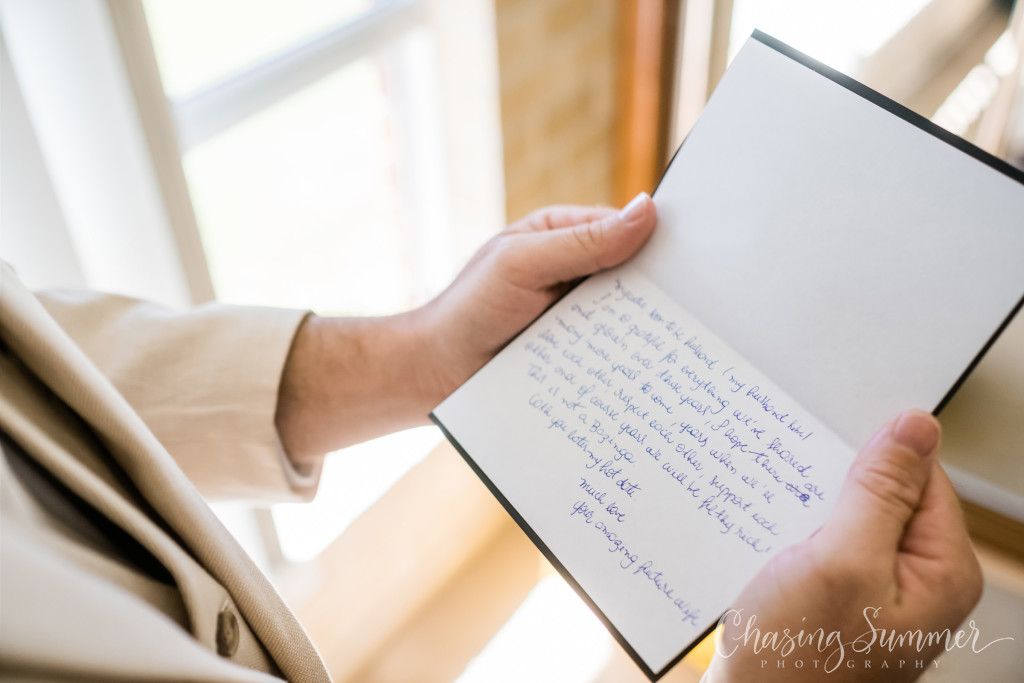 soon to be husband (my husband tobe)
I'm so grateful for everything we've shared
and grown over these years! I hope there are
many more years to come, years when we'll
love each other, respect each other, support each
other and of course years we will be filthy rich!
This is not a Bazinga
Catch you later my hot date
much love
your amazing future wife
Chasing Summer
PHOTOGRAPHY